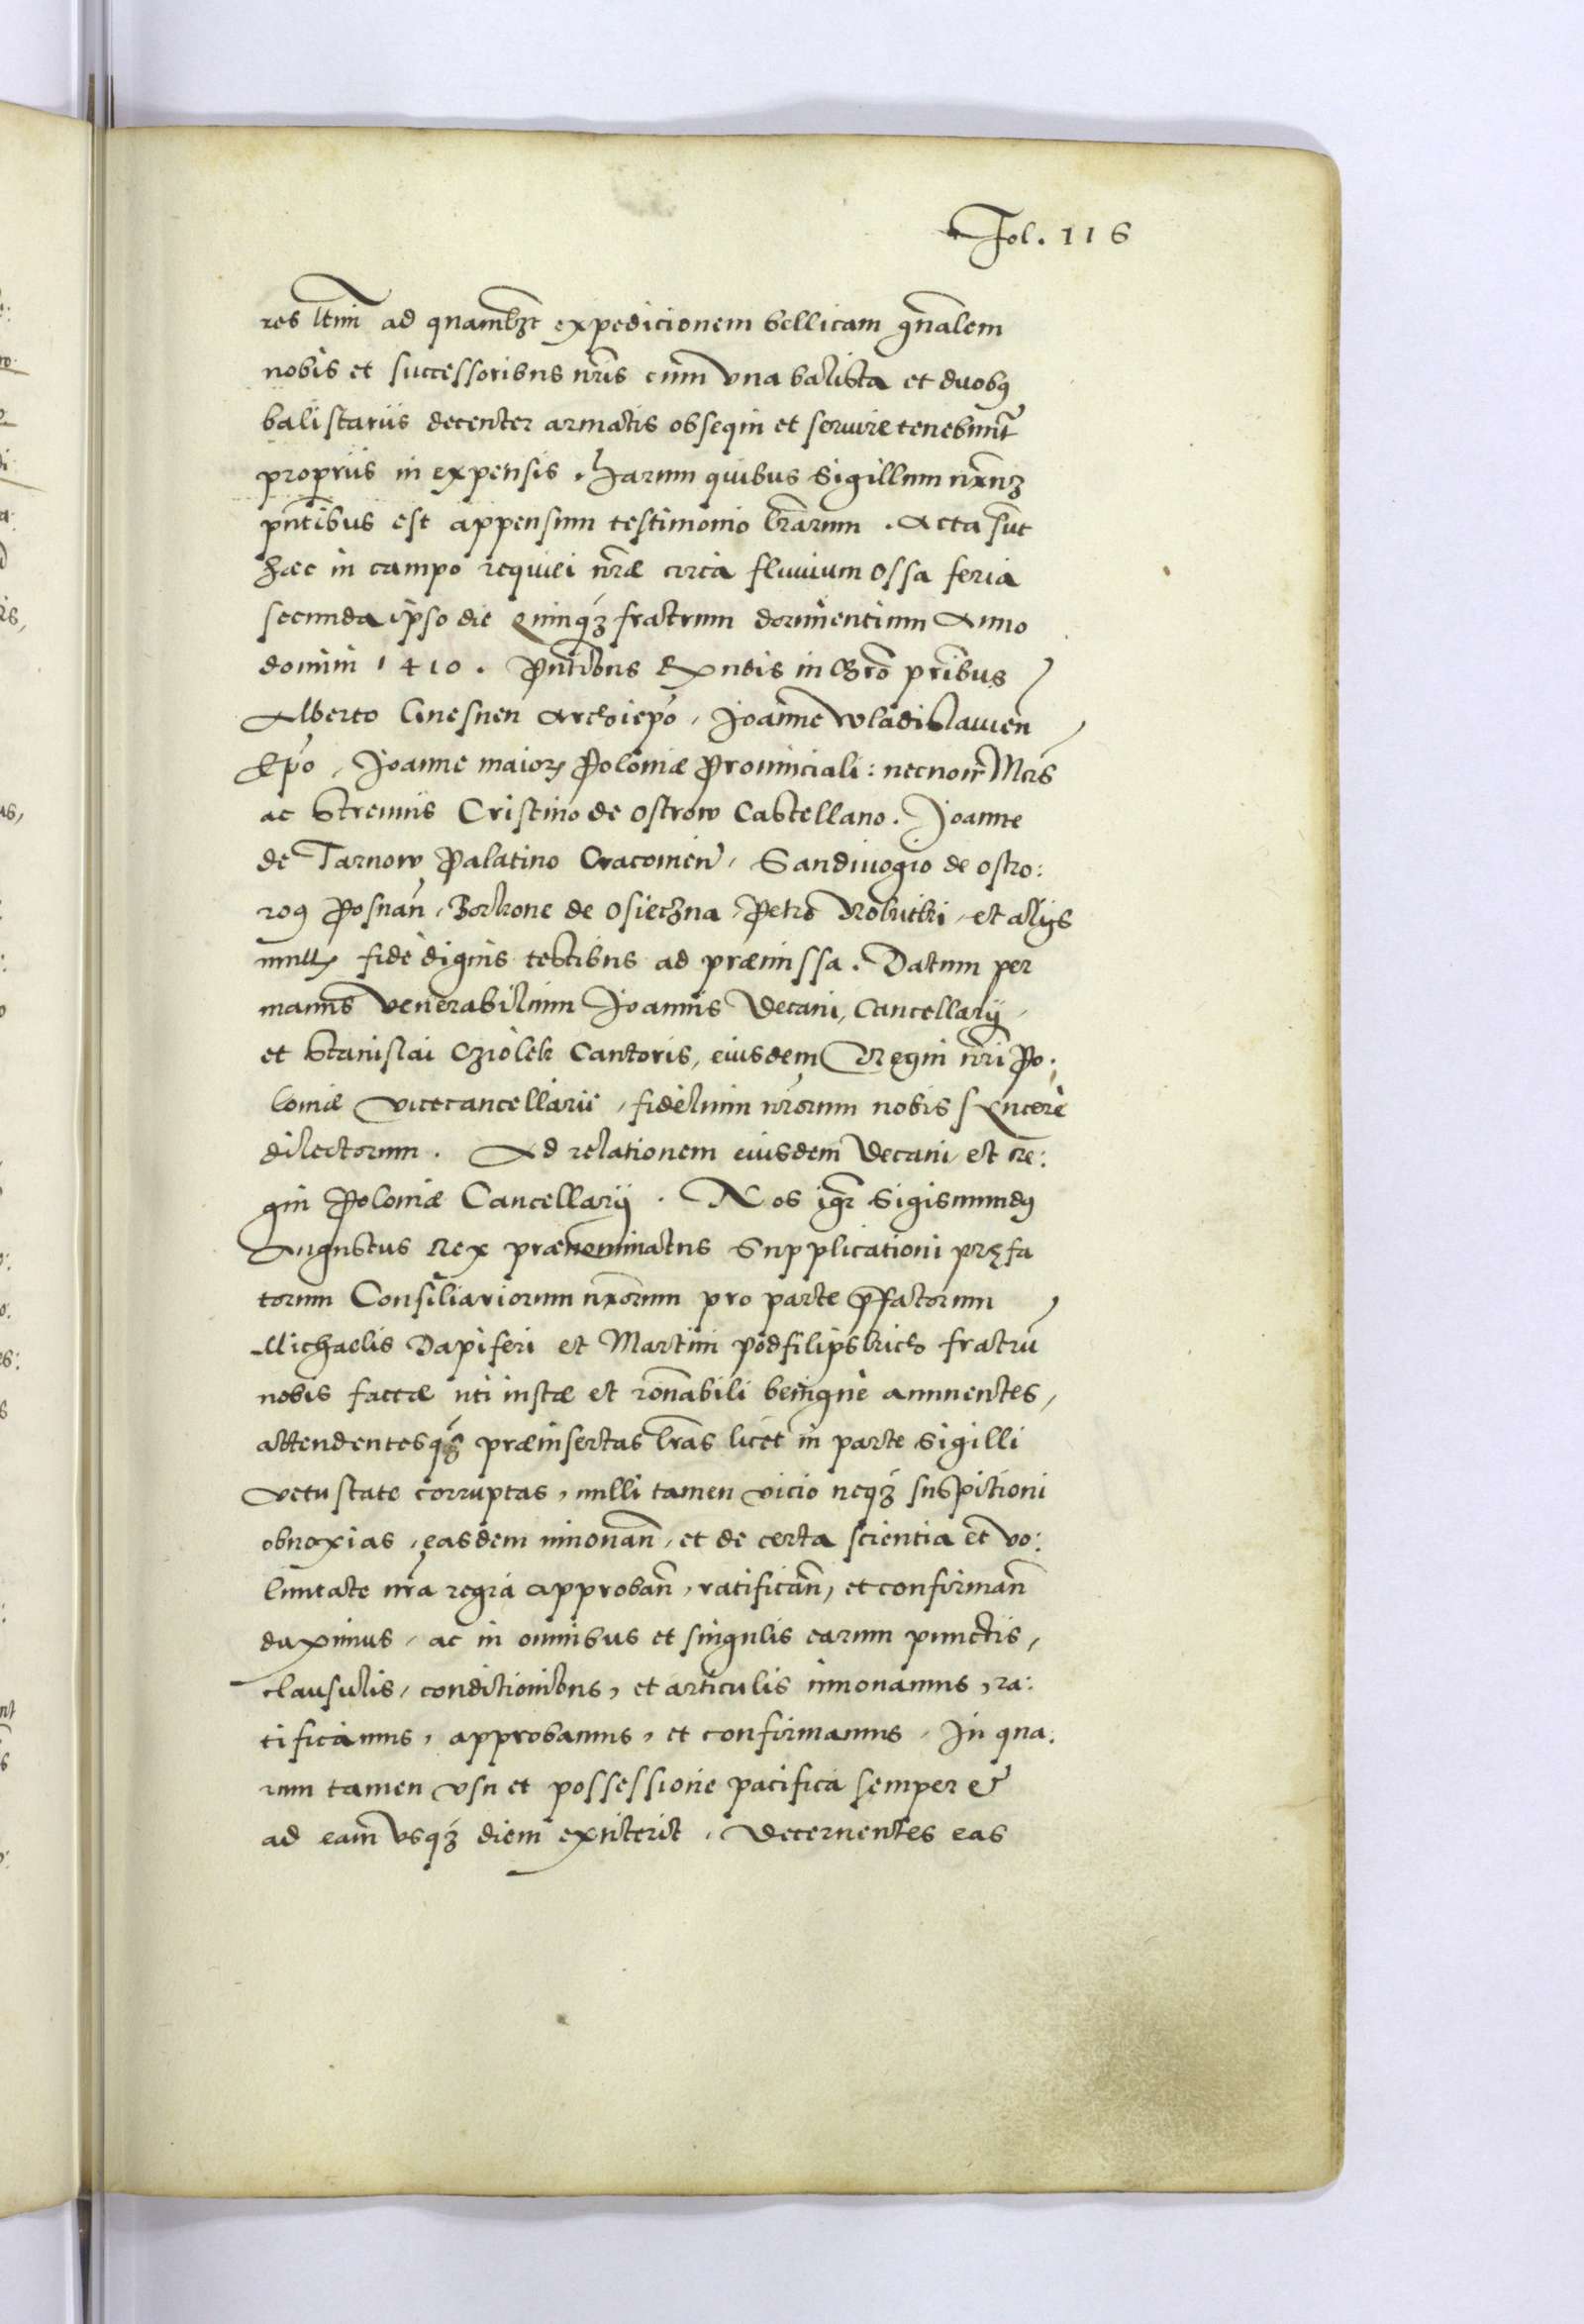 Fol. 116
res ltim ad quambzt expedicionem bellicam gnalem
nobis et successoribus nris cum vna balista et duobus
balistariis decenter armatis obsequi et seruire tenebunt
propriis in expensis. Harum quibus Sigillum nrmz
pntibus est appensum testimonio lrarum. Acta sunt
hæc in campo requiei nræ circa fluuium Ossa feria
secunda ipso die quinqz fratrum dormientium Anno
domini 1410. Pntibus Rxndis in Chro pribus
Alberto Gnesnen Archiepo, Joanne Wladislauien
Epo, Joanne maioris Poloniæ Prouinciali: necnon Mcis
ac Strenuis Cristino de Ostrow Castellano. Joanne
de Tarnow Palatino Cracouien, Sandiuogio de Ostro:
rog Posnan, Borkone de Osieczna, Petro et alijs
mult fide dignis testibus ad præmissa. Datum per
manus Venerabilium Joannis Decani, Cancellarij,
et Stanislai Cziolek Cantoris, eiusdem Regni nri Po:
loniæ vicecancellarii, fidelium nrorum nobis syncere
dilectorum. Ad relationem eiusdem Decani et Re:
gni Poloniæ Cancellarij. Nos igr Sigismundus
Augustus Rex prænominatus Supplicationi præfa
torum Consiliariorum nrorum pro parte pfatorum
Michaelis Dapiferi et Martini Podfilipskich fratru
nobis factæ uti iustæ et ronabili benigne annuentes,
attendentesqz præinsertas lras licet in parte Sigilli
vetustate corruptas, nulli tamen vicio neqz suspitioni
obnoxias, easdem innouan, et de certa scientia et vo:
luntate nra regia approban, ratifican, et confirman
duximus, ac in omnibus et singulis earum punctis,
clausulis, conditionibus, et articulis innouamus, ra:
tificamus, approbamus, et confirmamus, In qua:
rum tamen vsu et possessione pacifica semper et
ad eam vsqz diem extiterit, Decernentes eas